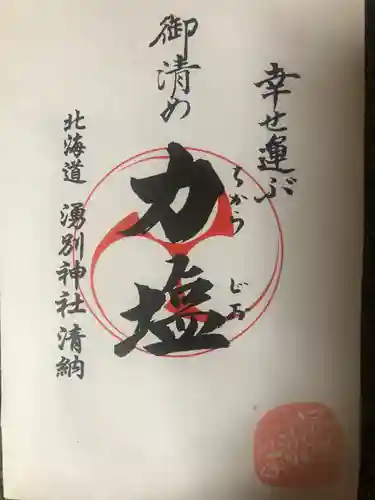 幸せ運ぶ
御清め
力塩
ちから じお
北海道 湧別神社 清納